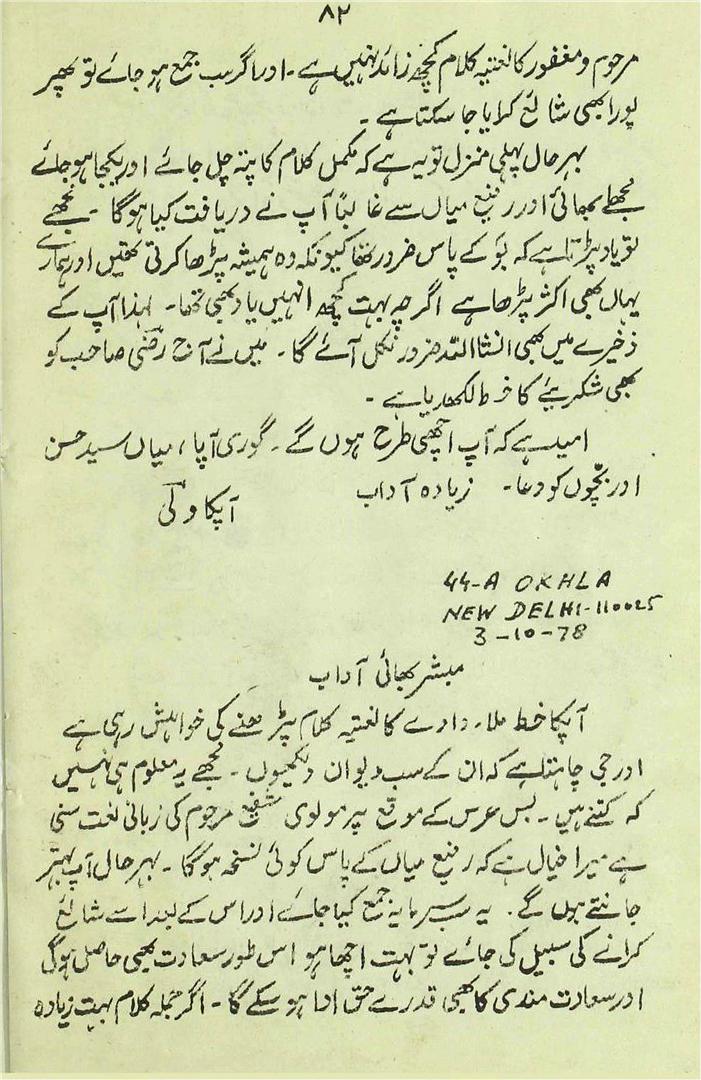 ۸۲
مرحوم و مغفور کا نعتیہ کلام کچھ زائد نہیں ہے۔ اور اگر سب جمع ہو جائے تو پھر
پورا بھی شائع کرایا جا سکتا ہے۔
بہر حال پہلی منزل تو یہ ہے کہ مکمل کلام کا پتہ چل جائے اور یکجا ہو جائے
مجھلے بھائی اور رفیع میاں سے غالباً آپ نے دریافت کیا ہوگا۔ مجھے
تو یاد پڑتا ہے کہ بوَّ کے پاس ضرور تھا کیونکہ وہ ہمیشہ پڑھا کرتی تھیں اور ہمارے
یہاں بھی اکثر پڑھا ہے اگرچہ بہت کچھ انہیں یاد بھی تھا۔ لہذا آپ کے
ذخیرے میں بھی انشا اللہ ضرور نکل آئے گا۔ میں نے آج رضی صاحب کو
بھی شکریئے کا خط لکھدیا ہے۔
امید ہے کہ آپ اچھی طرح ہوں گے۔ گوری آپا، میاں سید حسن
اور بچّوں کو دعا۔ زیادہ آداب
آپکا ولی
44-A OKHLA
NEW DELHI-110025
3-10-78
مبشر بھائی آداب
آپکا خط ملا۔ دادا کے نعتیہ کلام پڑھنے کی خواہش رہی ہے
اور جی چاہتا ہے کہ ان کے سب دیوان دیکھوں۔ مجھے یہ معلوم ہی نہیں
کہ کتنے ہیں۔ بس عرس کے موقع پر مولوی شفیع مرحوم کی زبانی نعت سنی
ہے میرا خیال ہے کہ رفیع میاں کے پاس کوئی نسخہ ہوگا۔ بہر حال آپ بہتر
جانتے ہوں گے۔ یہ سب سرمایہ جمع کیا جائے اور اس کے بعد اسے شائع
کرانے کی سبیل کی جائے تو بہت اچھا ہو اس طور سعادت بھی حاصل ہوگی
اور سعادت مندی کا بھی قدرے حق ادا ہو سکے گا۔ اگر جملہ کلام بہت زیادہ